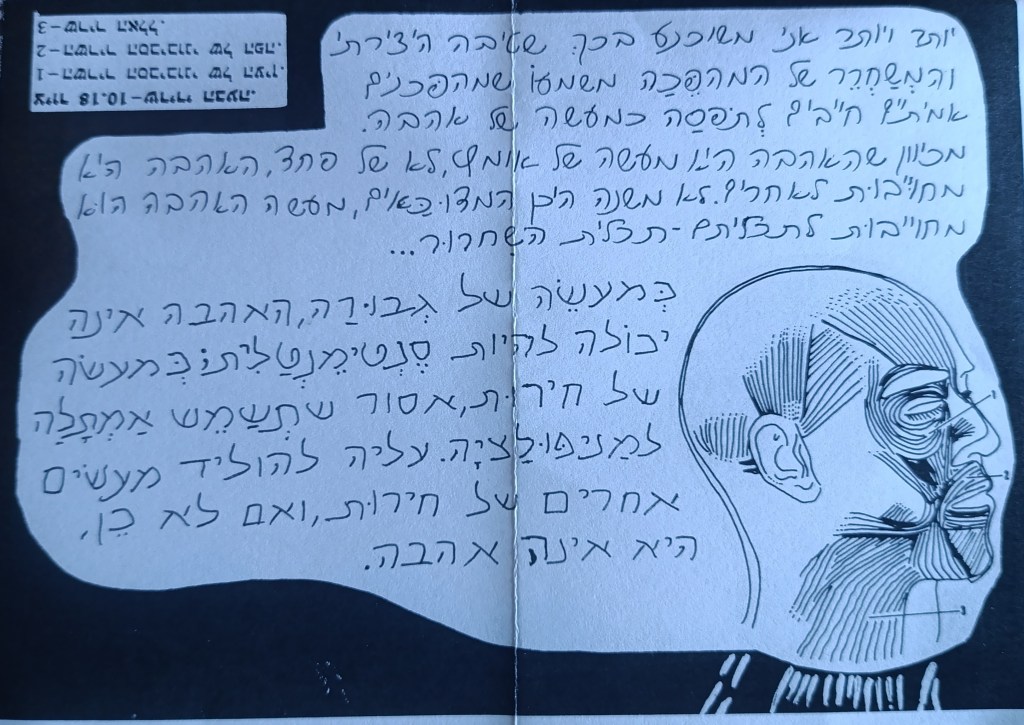 ציור 10.18 – שרירי הבעה.
1 – השריר הסביבוני של העין.
2 – השריר הסביבוני של הפה.
3 – שריר האלל.
יותר ויותר אני משוכנע בכך שטיבה היצירתי
והמְשַחְרֵר של המהפֵּכָה משמעו שמהפכנים
אמיתיים חייבים לְתׇפְסַה כמעשה של אהבה.
מכיוון שהאהבה הינו מעשה של אומץ, לא של פחד, האהבה היא
מחוייבות לאחרים. לא משנה היכן המדוּכַּאים, מעשה האהבה הוא
מחוייבות לתכליתם - תכלית השִחרור...
כְּמעשֶׂה של גְבוּרַה, האהבה אינה
יכוֹלה להיות סֶנְטִימֶנְטַלִית; כְּמעשׂה
של חירוּת, אסור שתְשַמֵש אַמַתְלָה
למַניפּוּלַציָה. עליה להוליד מעשׂים
אחרים של חירוּת, ואם לא כֵן,
היא אינה אהבה.
1
2
3